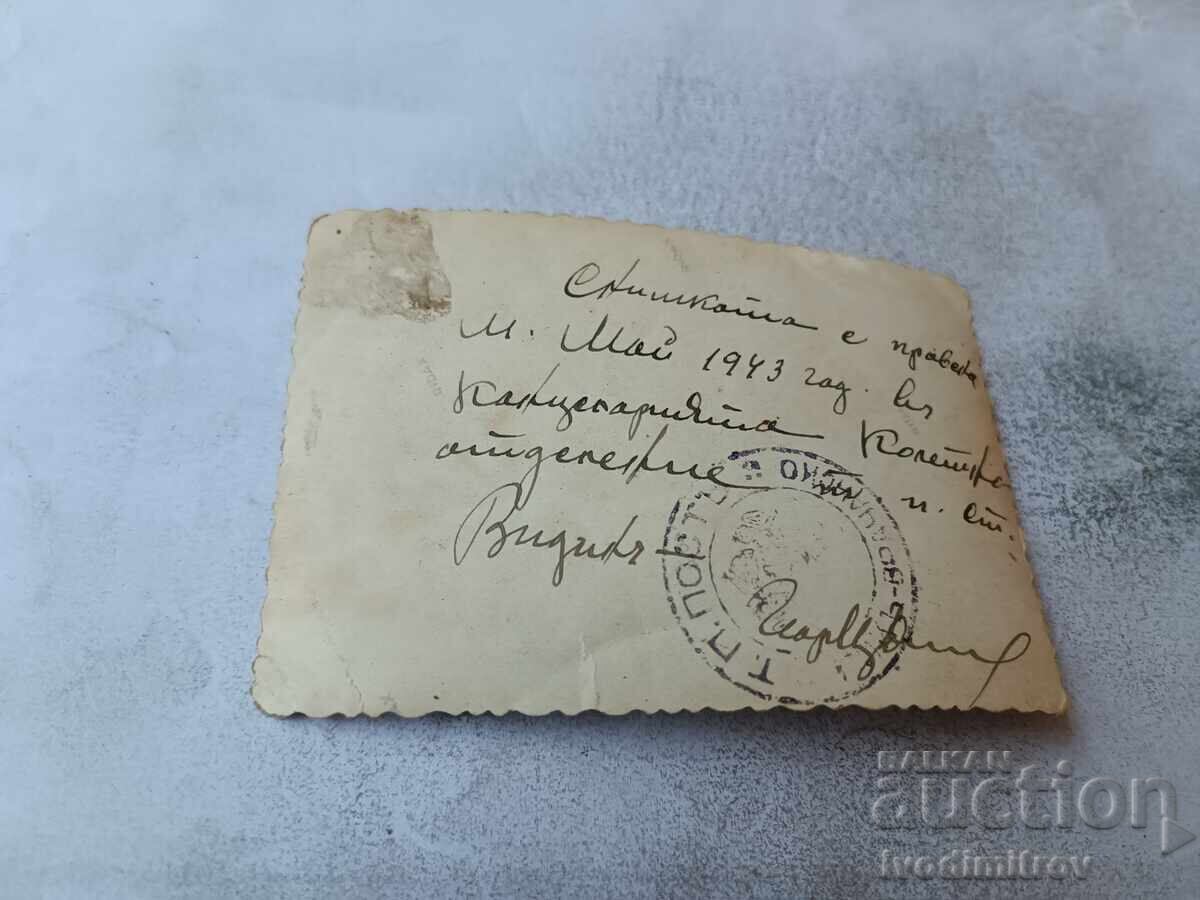 Снимката е правена
М. Май 1943 год. въ
Канцеларията Колетно
отделение п. ст.
Видинъ
Т. П. ПОРТЪ
BALKAN
auction
ivodimitrov